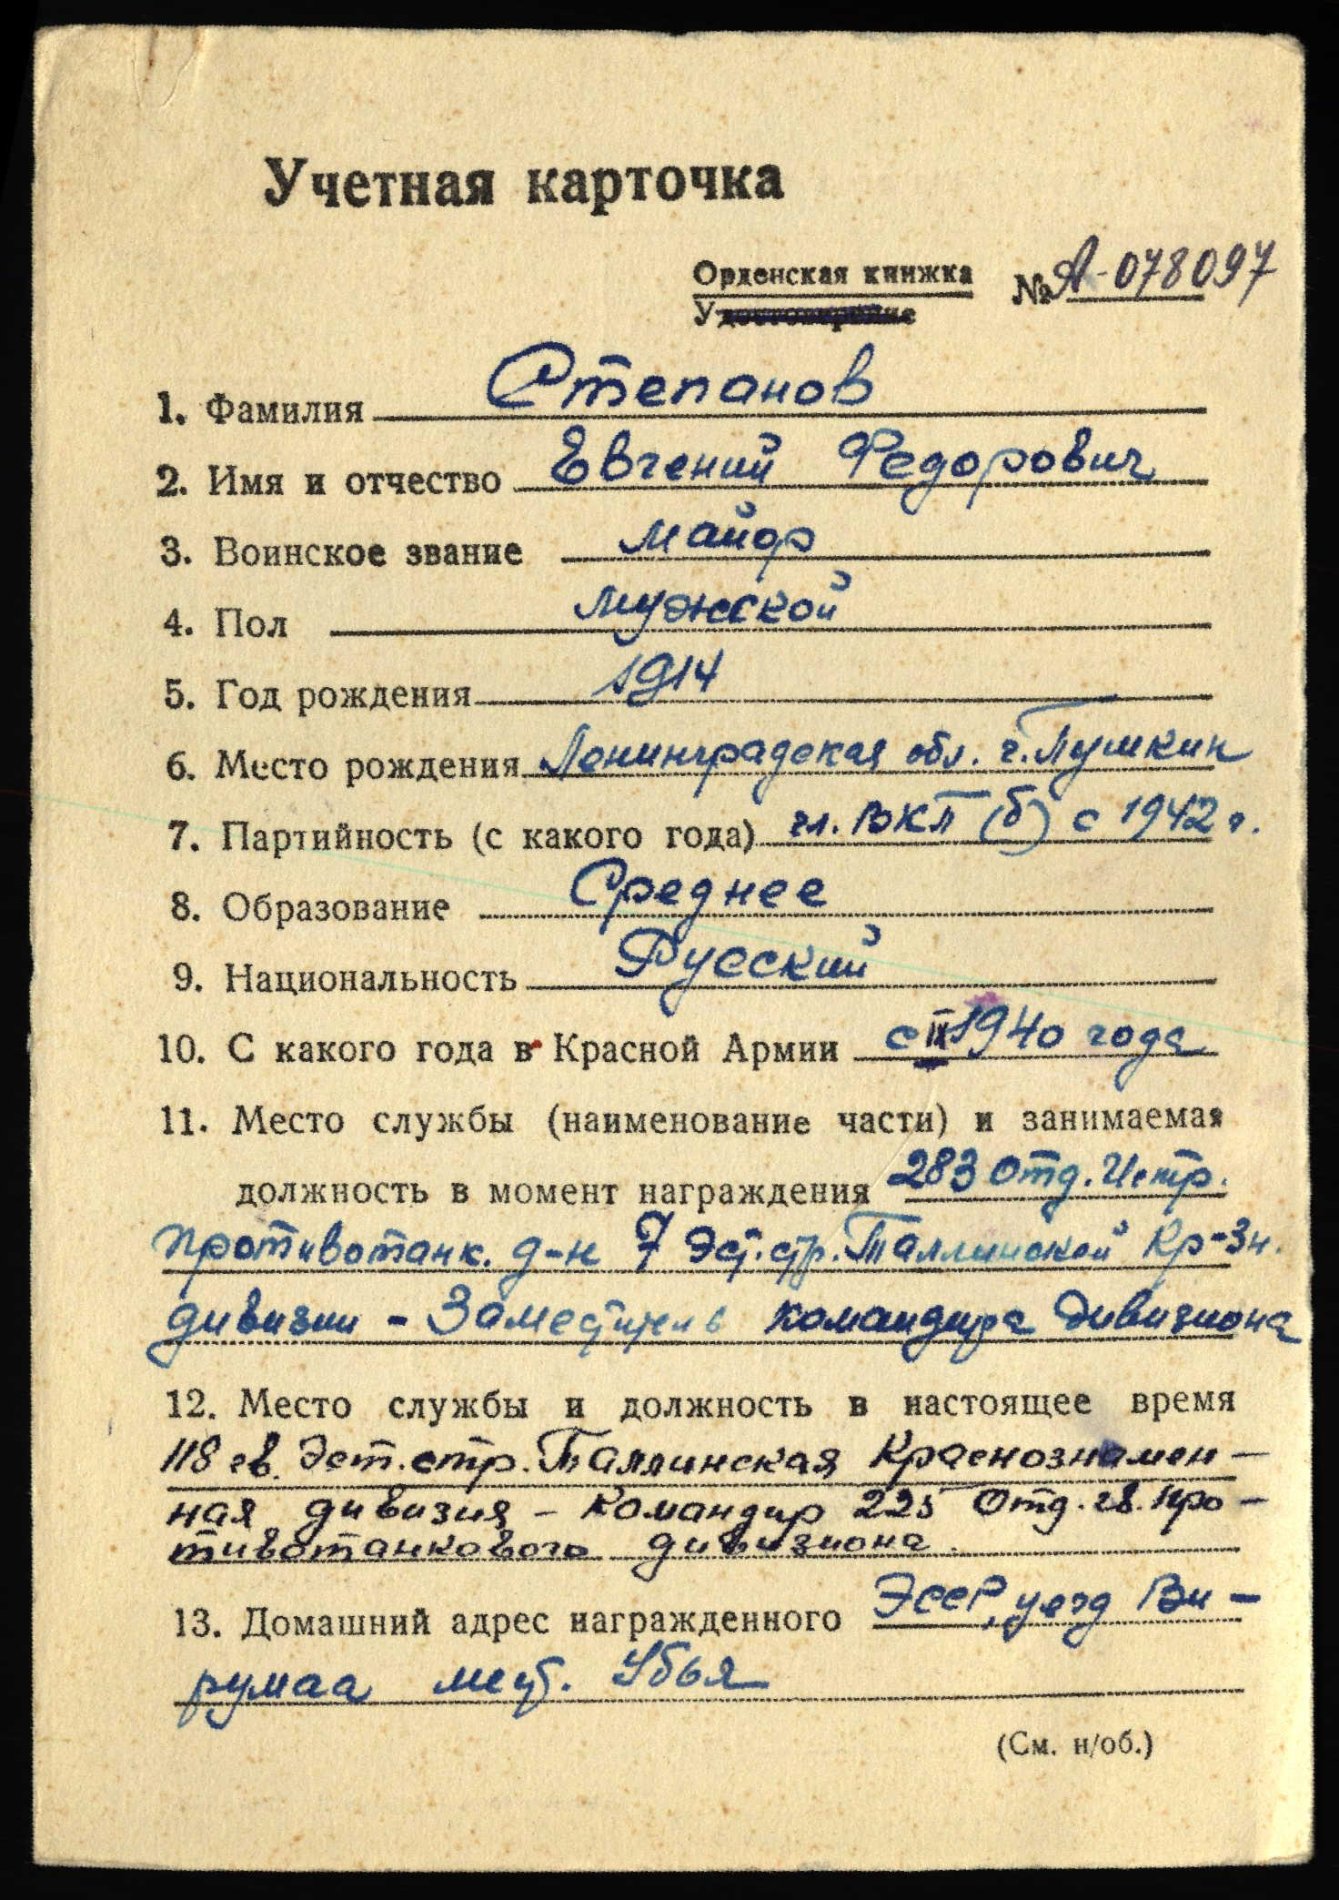 Учетная карточка
Орденская книжка №А-078097
Удостоверение
1. Фамилия Степанов
2. Имя и отчество Евгений Федорович
3. Воинское звание майор
4. Пол мужской
5. Год рождения 1914
6. Место рождения Ленинградская обл. г. Пушкин
7. Партийность (с какого года) чл. ВКП(б) с 1942 г.
8. Образование Среднее
9. Национальность Русский
10. С какого года в Красной Армии с IX 1940 года
11. Место службы (наименование части) и занимаемая
должность в момент награждения 283 Отд. Истр.
противотанк. д-н 7 Эст. стр. Таллинской Кр-Зн.
дивизии - Заместитель командира дивизиона
12. Место службы и должность в настоящее время
118 гв. Эст. стр. Таллинская Краснознамен-
ная дивизия - Командир 225 Отд. гв. про-
тивотанкового дивизиона.
13. Домашний адрес награжденного ЭССР, уезд Ви-
румаа мет. Убья
(См. н/об.)